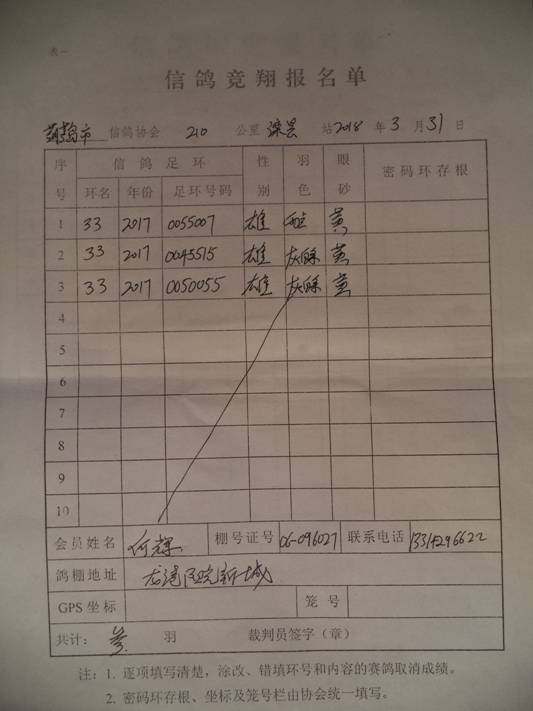 表一
信鸽竞翔报名单
葫芦岛市 信鸽协会 210 公里 滦县 站 2018 年 3 月 31 日
序号 信鸽足环 性别 羽色 眼砂 密码环存根
环名 年份 足环号码
1 33 2017 0055007 雄 黄
2 33 2017 0045515 雄 灰 黄
3 33 2017 0050055 雄 灰 黄
4
5
6
7
8
9
10
会员姓名 何辉 棚号证号 06-096027 联系电话
鸽棚地址 龙港区 新城
GPS坐标 笼号
共计： 叁 羽 裁判员签字（章）
注：1. 逐项填写清楚，涂改、错填环号和内容的赛鸽取消成绩。
2. 密码环存根、坐标及笼号栏由协会统一填写。